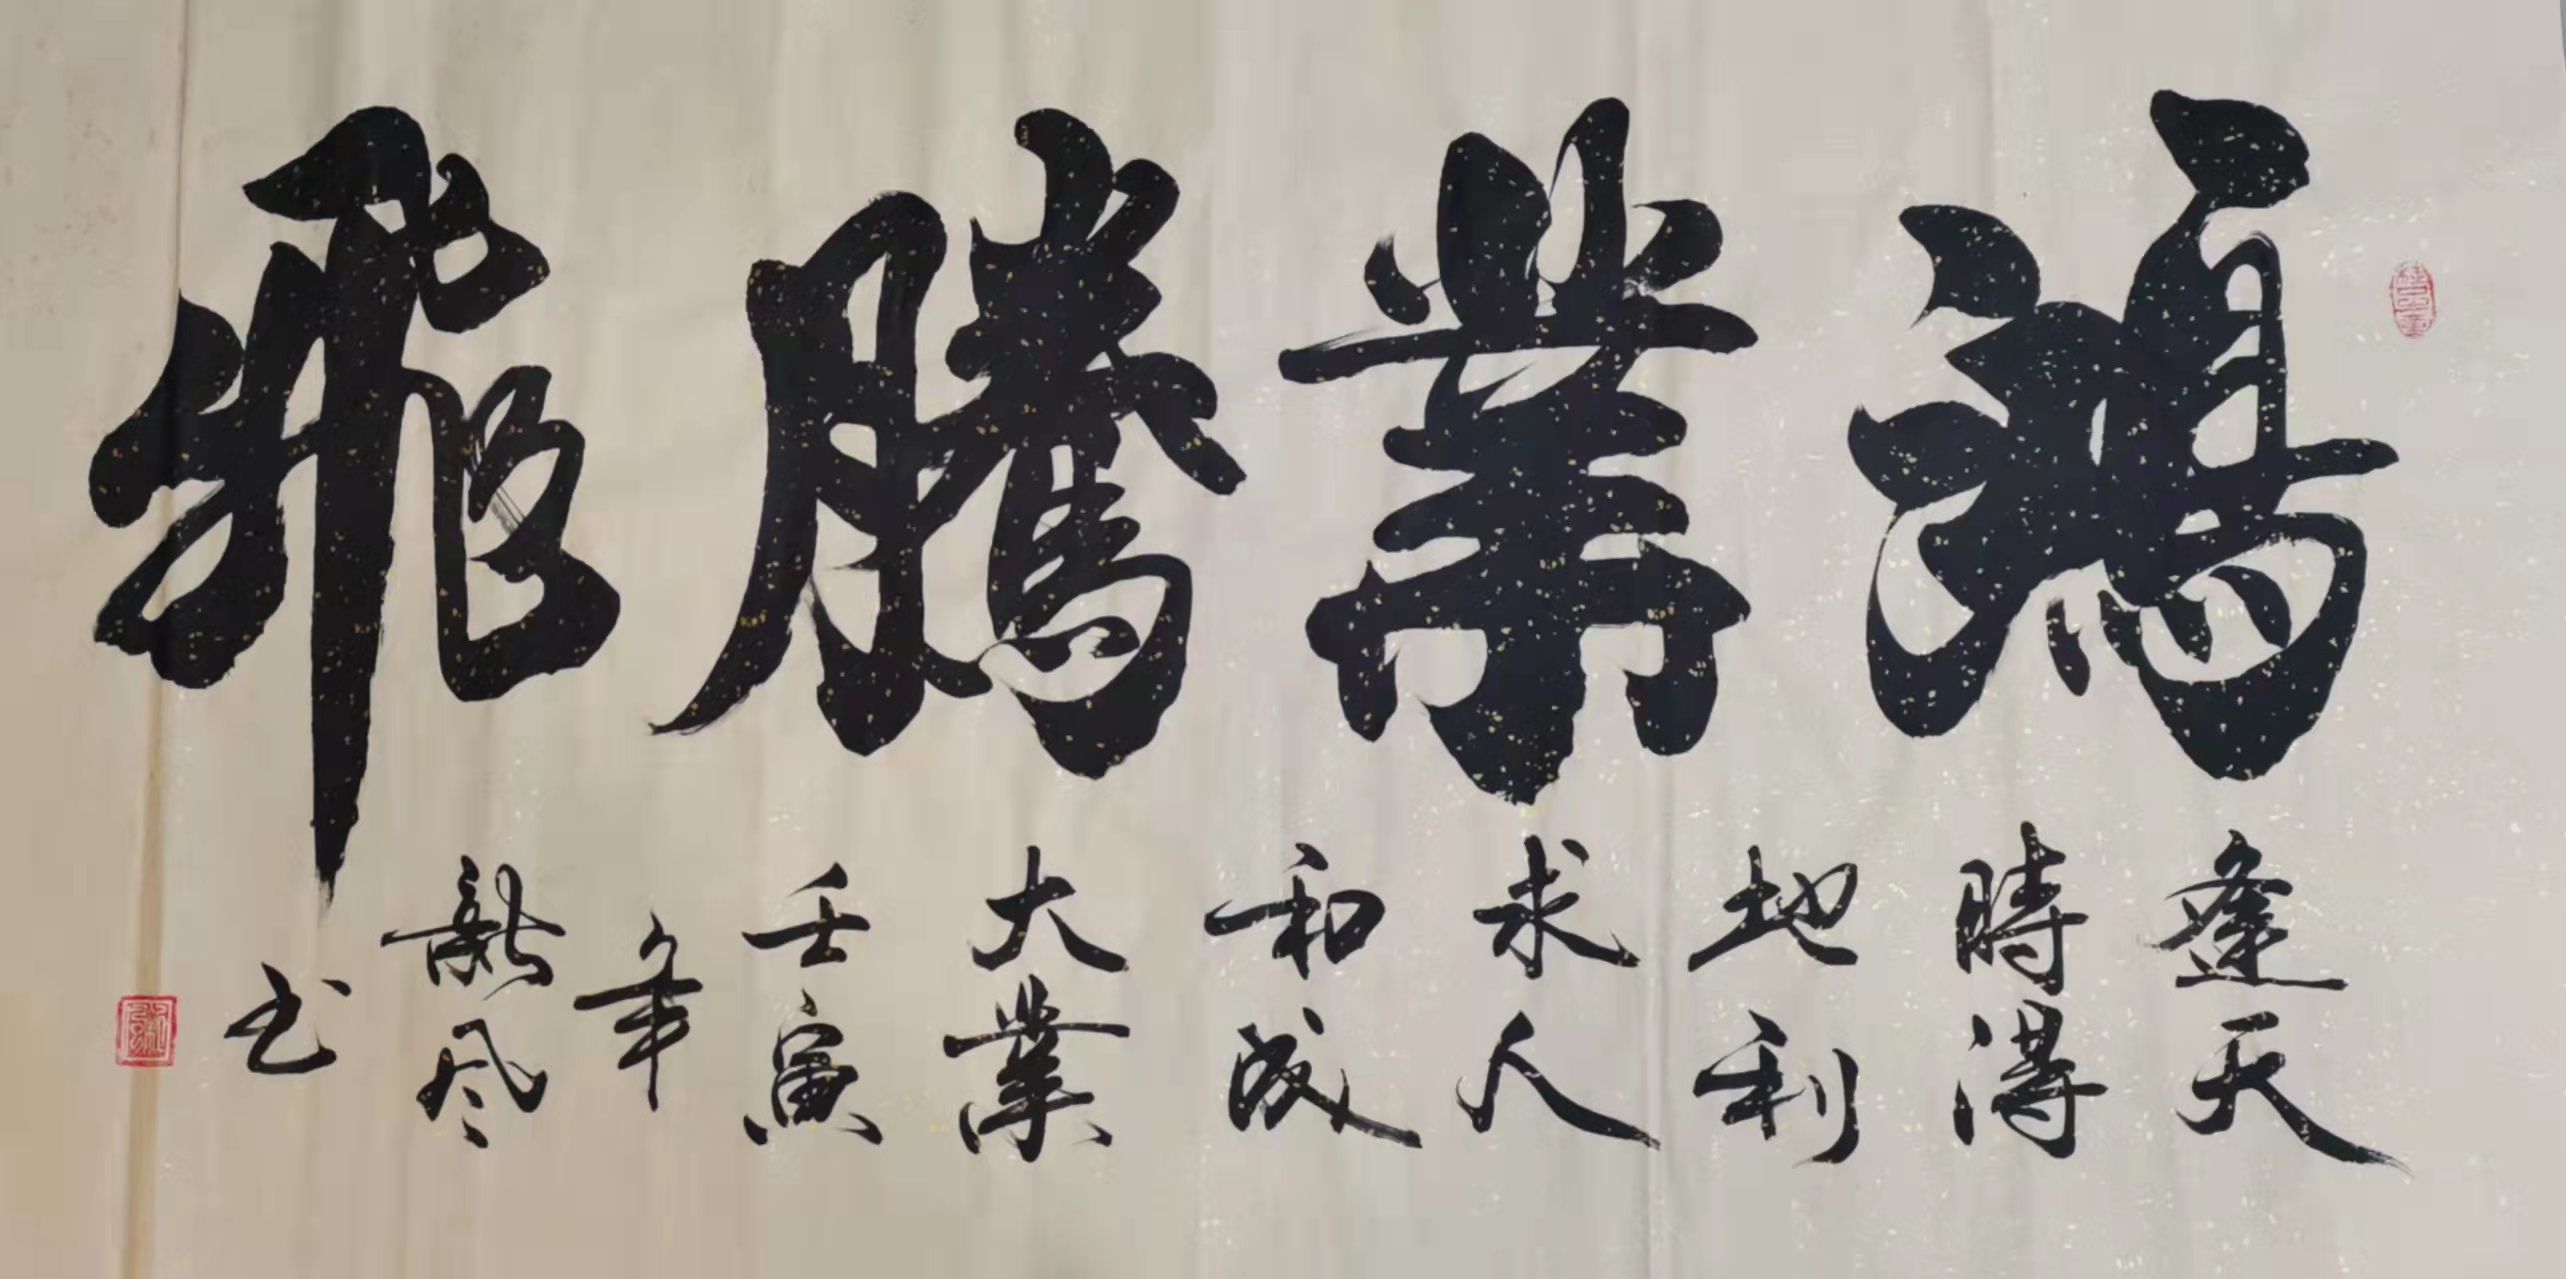 鴻業騰飛
逢天
時得
地利
求人
和成
大業
壬寅
年
风
书